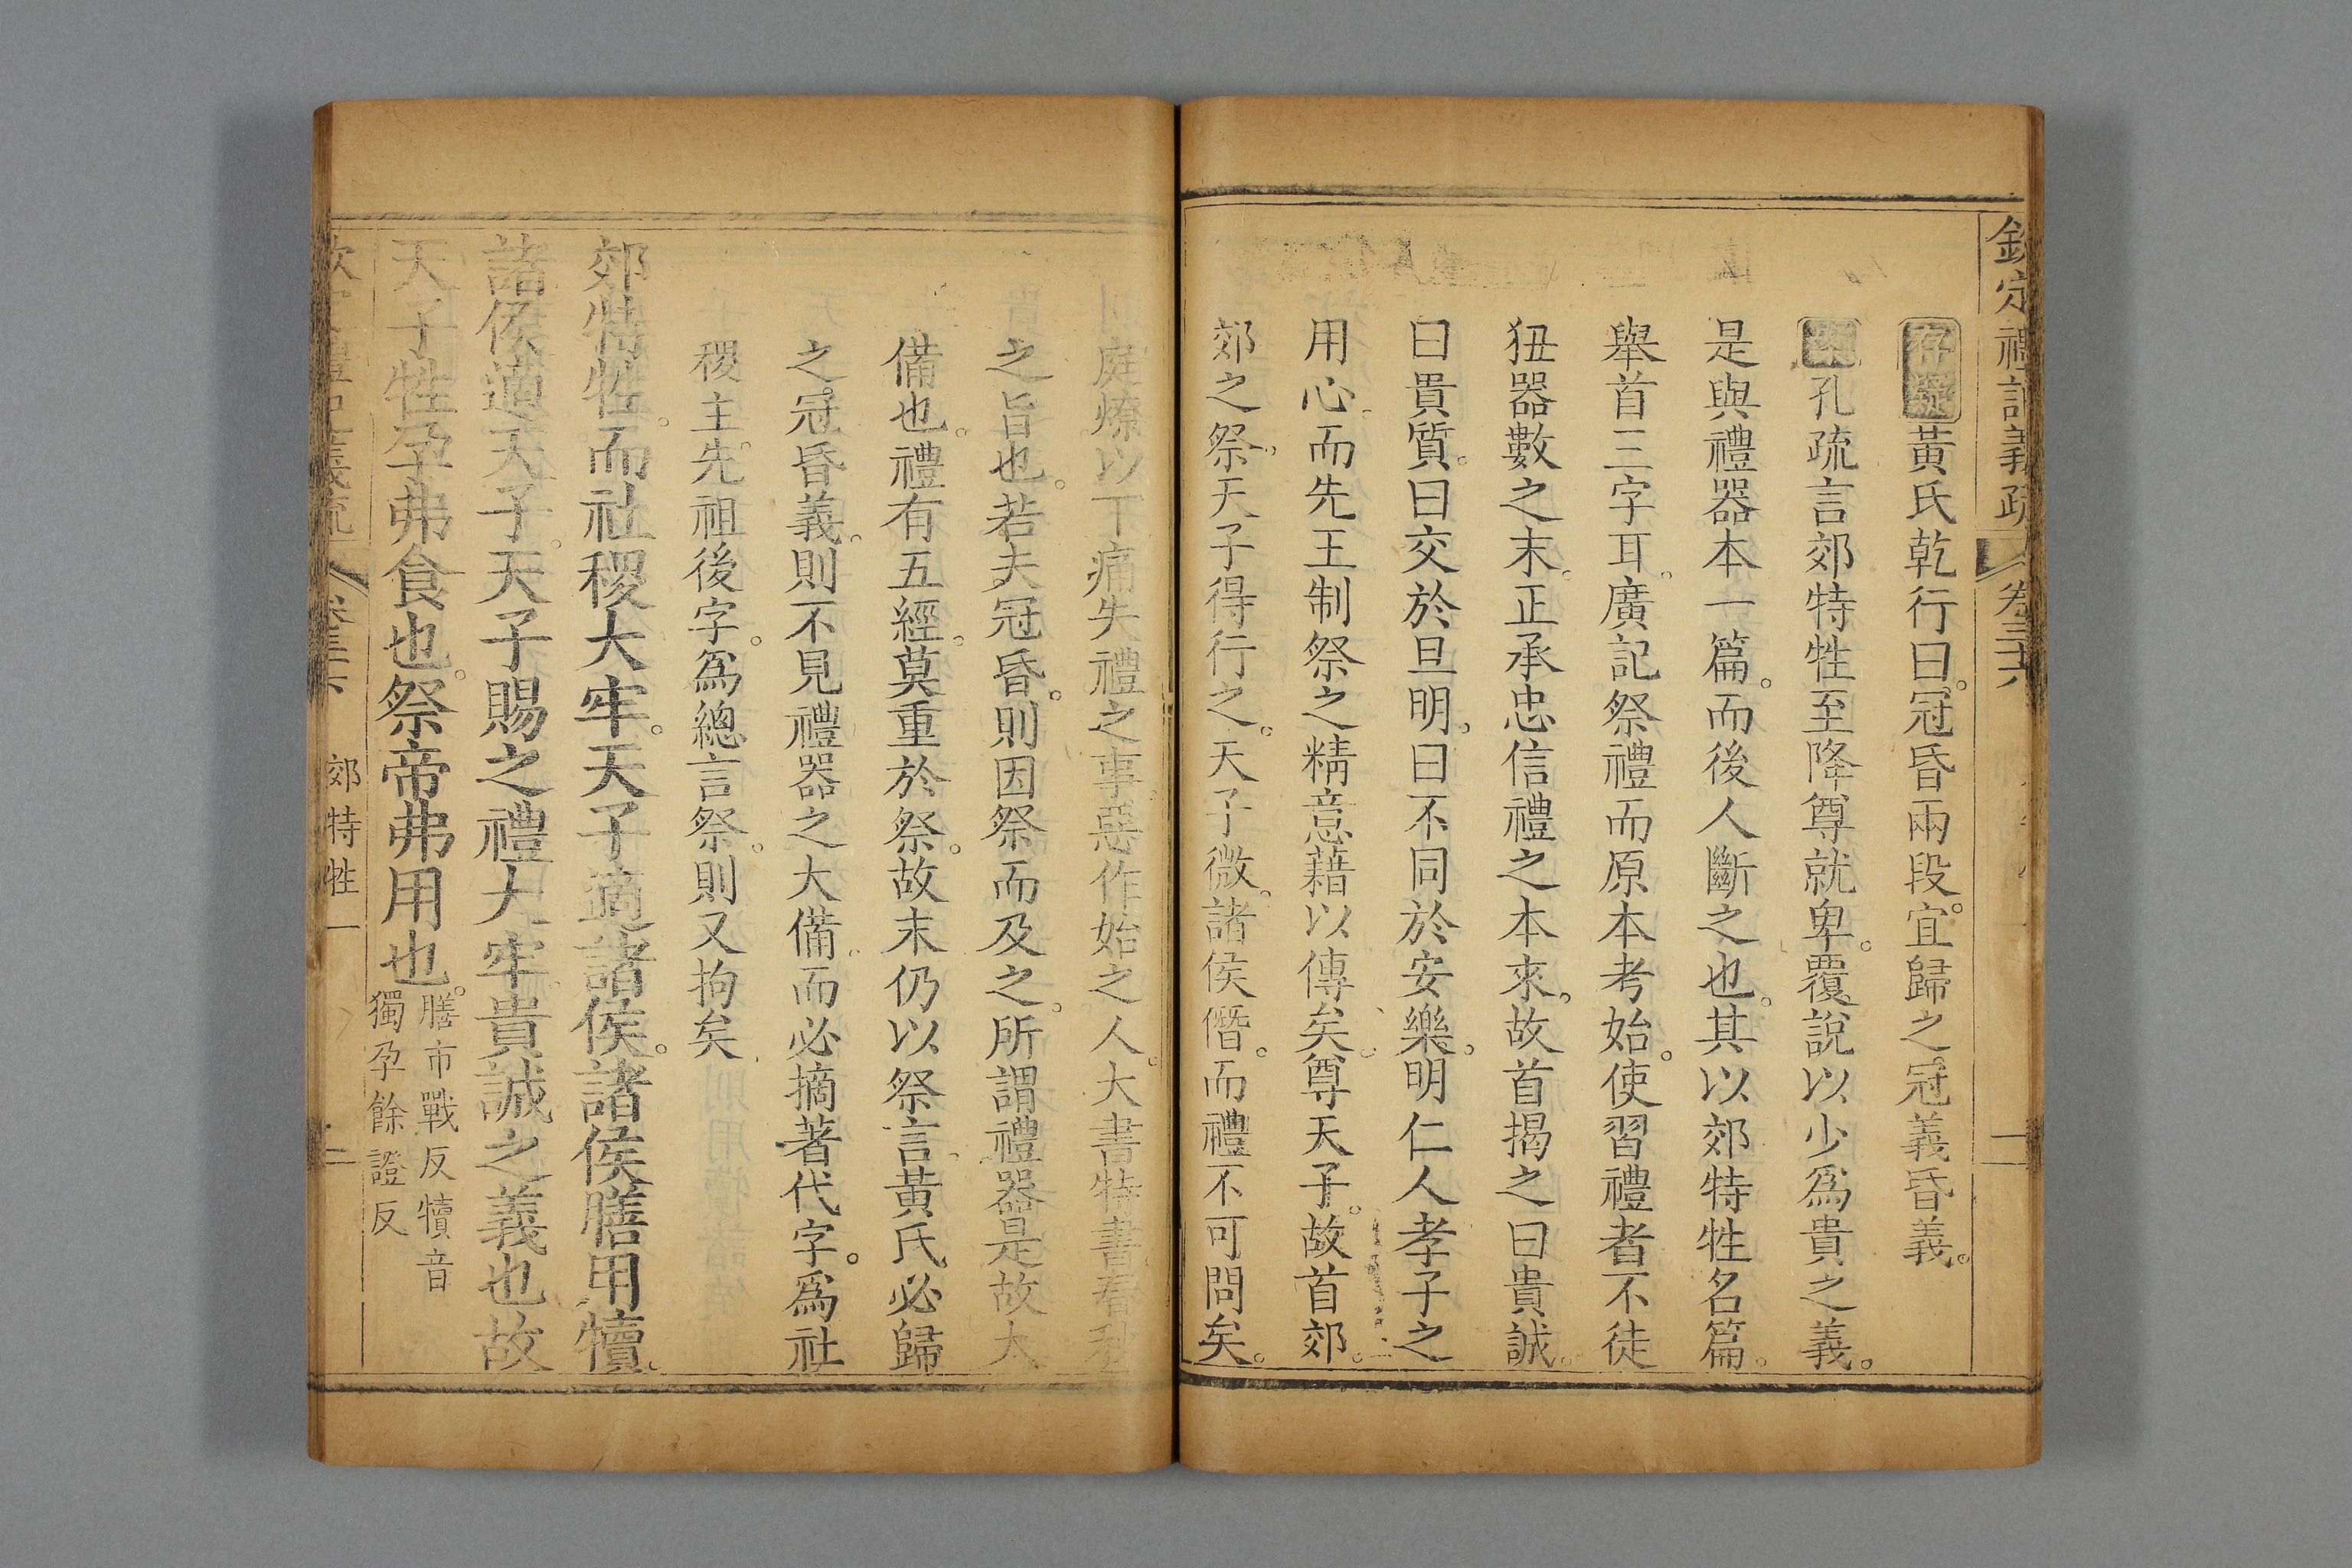 欽定禮記義疏 卷三十六 一
存疑黃氏乾行曰。冠昏兩段。宜歸之冠義昏義。
案孔疏言郊特牲至降尊就卑。覆說以少爲貴之義。
是與禮器本一篇。而後人斷之也。其以郊特牲名篇。
舉首三字耳。廣記祭禮而原本考始。使習禮者不徒
狃器數之末。正承忠信禮之本來。故首揭之曰貴誠。
曰貴質。曰交於旦明。曰不同於安樂。明仁人孝子之
用心。而先王制祭之精意藉以傳矣。尊天子。故首郊。
郊之祭。天子得行之。天子微。諸侯僭。而禮不可問矣。
庭燎以下痛失禮之事。惡作始之人。大書特書春秋
之旨也。若夫冠昏。則因祭而及之。所謂禮器是故大
備也。禮有五經。莫重於祭。故末仍以祭言黃氏必歸
之冠昏義。則不見禮器之大備。而必摘著代字。爲社
稷主先祖後字。爲總言祭。則又拘矣
郊特牲。而社稷大牢。天子適諸侯。諸侯膳用犢。
諸侯適天子。天子賜之禮大牢。貴誠之義也故
天子牲孕弗食也。祭帝弗用也。膳市戰反犢音
獨孕餘證反
欽定禮記義疏 卷三十六 郊特牲一 二